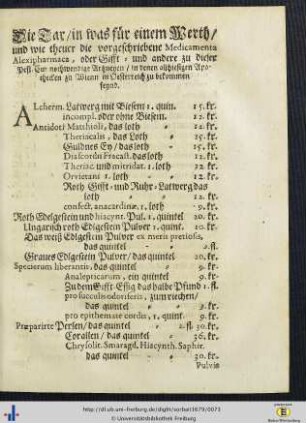 Die Tax / in was für einem Werth /
und wie theuer die vorgeschriebene Medicamenta
Alexipharmaca, oder Gifft- und andere zu dieser
Pest-Cur nothwendige Artzneyen / in denen allhiesigen Apo-
thecken zu Wienn in Oesterreich zu bekommen
seynd.
Alcherm. Latwerg mit Biesem 1. quin. 15. kr.
incompl. oder ohne Biesem. 12. kr.
Antidoti Matthioli, das loth 15. kr.
Theriacalis, das Loth 15. kr.
Guldnes Ey / das loth 15. kr.
Diascordii Fracast. das loth 12. kr.
Theriac. und mitridat. 1. loth 12. kr.
Orvietani 1. loth 12. kr.
Roth Gifft- und Ruhr-Latwerg das
loth 12. kr.
confect. anacardinæ. 1. loth 9. kr.
Roth Edelgestein und hiacynt. Pul. 1. quintel 20. kr.
Ungarisch roth Edlgestein Pulver 1. quint. 10. kr.
Das weiß Edlgestein Pulver ex meris pretiosis,
das quintel 2. fl.
Graues Edlgestein Pulver / das quintel 20. kr.
Specierum liberantis, das quintel 9. kr.
Analepticarum, ein quintel 9. kr.
Zu dem Gifft-Essig das halbe Pfund 1. fl.
pro sacculis odoriferis, zum riechen /
das quintel 9. kr.
pro epithemate cordis, 1. quint. 9. kr.
Præparirte Perlen / das quintel 1. fl. 30. kr.
Corallen / das quintel 36. kr.
Chrysolit. Smaragd. Hiacynth. Saphir.
das quintel 30. kr.
Pulvis
http://dl.ub.uni-freiburg.de/diglit/sorbait1679/0073
© Universitätsbibliothek Freiburg